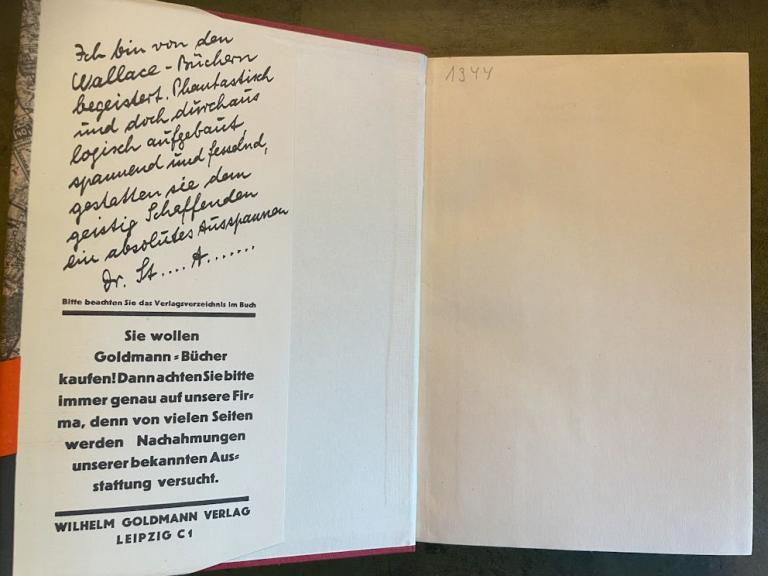 Ich bin von den
Wallace-Büchern
begeistert. Phantastisch
und doch durchaus
logisch aufgebaut,
spannend und fesselnd,
gestatten sie dem
geistig Schaffenden
ein absolutes Ausspannen
Dr. St.... A.......
Bitte beachten Sie das Verlagsverzeichnis im Buch
Sie wollen
Goldmann=Bücher
kaufen! Dann achten Sie bitte
immer genau auf unsere Fir=
ma, denn von vielen Seiten
werden Nachahmungen
unserer bekannten Aus=
stattung versucht.
WILHELM GOLDMANN VERLAG
LEIPZIG C1
1344